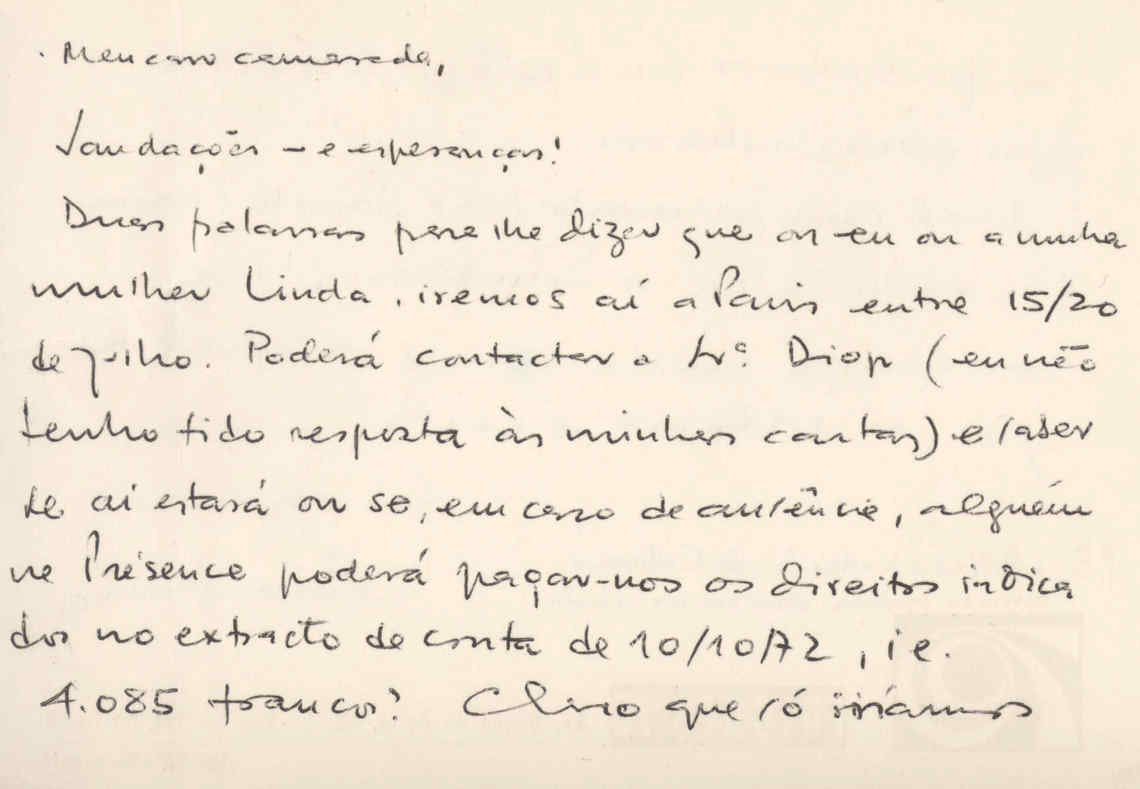 Meu caro camarada,
Saudações – e esperanças!
Duas palavras para lhe dizer que ou eu ou a minha
mulher Linda, iremos aí a Paris entre 15/20
de Julho. Poderá contactar a Srª Diop (eu não
tenho tido resposta às minhas cartas) e saber
se aí estará ou se, em caso de ausência, alguém
na Présence poderá pagar-nos os direitos indica
dos no extracto de conta de 10/10/72, ie.
4.085 francos? Claro que só iríamos